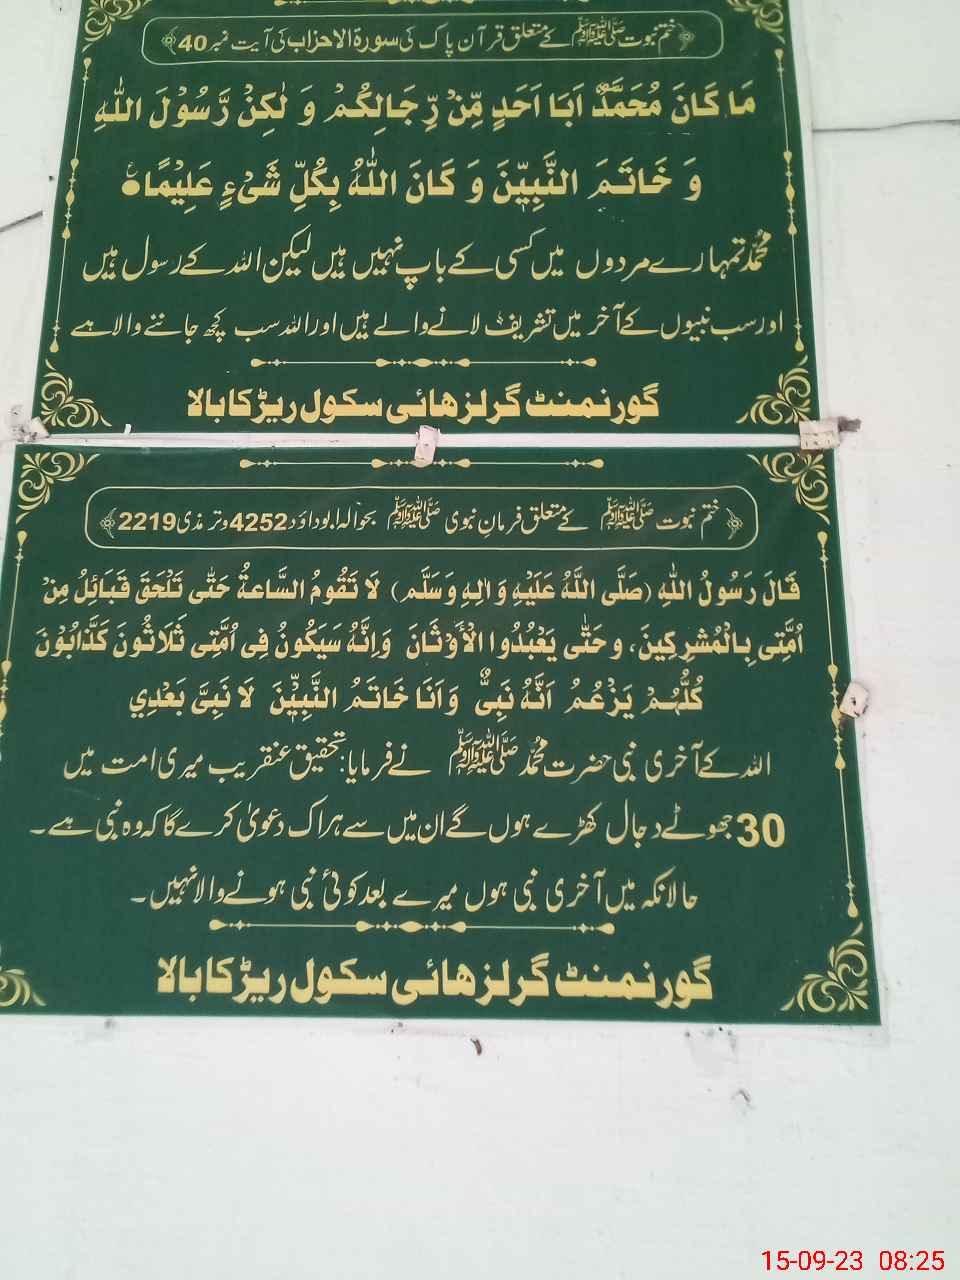 ختم نبوت ﷺ کے متعلق قرآن پاک کی سورۃ الاحزاب کی آیت نمبر 40
مَا كَانَ مُحَمَّدٌ اَبَا اَحَدٍ مِّنْ رِّجَالِكُمْ وَ لٰكِنْ رَّسُوْلَ اللّٰهِ
وَ خَاتَمَ النَّبِيّٖنَ وَ كَانَ اللّٰهُ بِكُلِّ شَیْءٍ عَلِيْمًا
محمدؐ تمہارے مردوں میں کسی کے باپ نہیں ہیں لیکن اللہ کے رسول ہیں
اور سب نبیوں کے آخر میں تشریف لانے والے ہیں اور اللہ سب کچھ جاننے والا ہے
گورنمنٹ گرلز ھائی سکول ریڑکا بالا
ختم نبوت ﷺ کے متعلق فرمان نبوی ﷺ بحوالہ ابوداؤد 4252 و ترمذی 2219
قَالَ رَسُوْلُ اللّٰهِ (صَلَّى اللّٰهُ عَلَيْهِ وَاٰلِهِ وَسَلَّم) لَا تَقُوْمُ السَّاعةُ حَتّٰى تَلْحَقَ قَبَائِلُ مِنْ
اُمَّتِى بِالْمُشْرِكِينَ، وحَتّٰى يَعْبُدُوا الْاَوْثَانَ وَاِنَّهُ سَيَكُونُ فِى اُمَّتِى ثَلَاثُونَ كَذَّابُوْنَ
كُلُّهُمْ يَزْعُمُ اَنَّهُ نَبِىٌّ وَاَنَا خَاتَمُ النَّبِيّٖنَ لَا نَبِىَّ بَعْدِي
اللہ کے آخری نبی حضرت محمد ﷺ نے فرمایا: تحقیق عنقریب میری امت میں
30 جھوٹے دجال کھڑے ہوں گے ان میں سے ہر اک دعویٰ کرے گا کہ وہ نبی ہے۔
حالانکہ میں آخری نبی ہوں میرے بعد کوئی نبی ہونے والا نہیں۔
گورنمنٹ گرلز ھائی سکول ریڑکا بالا
15-09-23 08:25